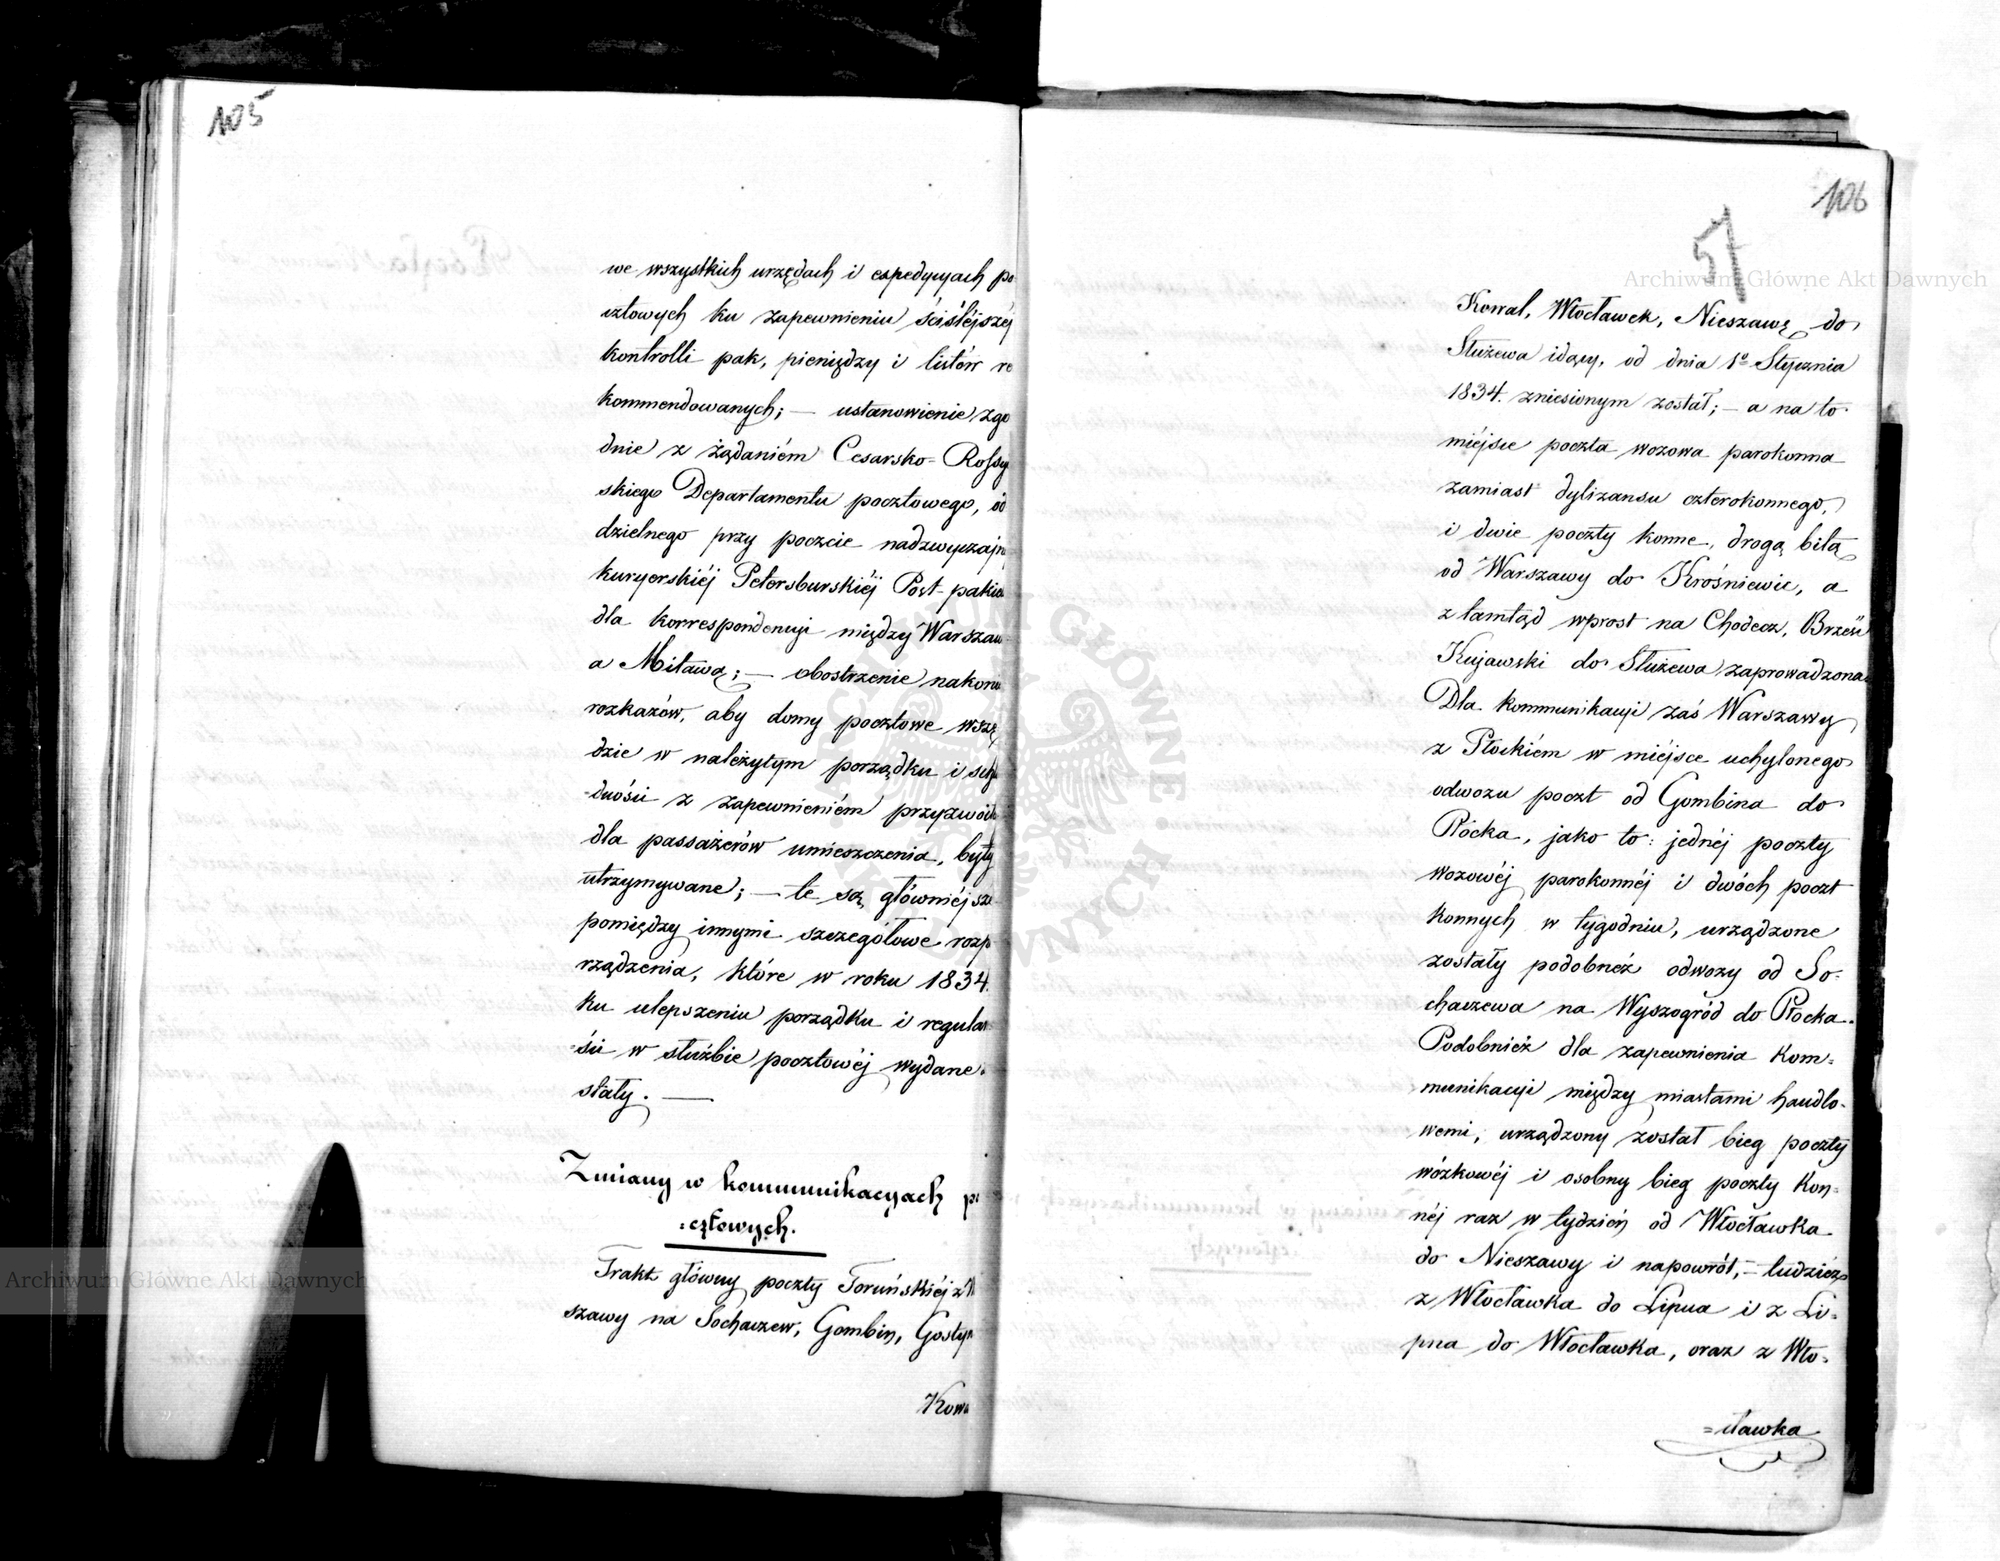 105
we wszystkich urzędach i expedycyach po
cztowych ku zapewnieniu ściślejszéj
kontrolli pak, pieniędzy i listów re
kommendowanych; — ustanowienie zgo
dnie z żądaniém Cesarsko-Rossy
skiego Departamentu pocztowego, od
dzielnego przy poczcie nadzwyczajn
kuryerskiéj Petersburskiéj Post-pakie
dla korrespondencyi między Warszaw
a Mitawą; — obostrzenie nakon
rozkazów, aby domy pocztowe wszę
dzie w należytym porządku i schl
=dności z zapewnieniém przyzwoit
dla passażerów umieszczenia, były
utrzymywane; — te są głowniéjsze
pomiędzy innymi szczegółowe rozp
rządzenia, które w roku 1834.
ku ulepszeniu porządku i regular
=ści w służbie pocztowéj wydane
stały. —
Zmiany w kommunikacyach po
=cztowych.
Trakt główny poczty Toruńskiéj z W
szawy na Sochaczew, Gombin, Gostyn
Kowa
106
57
Kowal, Włocławek, Nieszawę do
Służewa idący, od dnia 1º Stycznia
1834. zniesionym został; — a na to
miéjsce poczta wozowa parokonna
zamiast dyliżansu czterokonnego,
i dwie poczty konne, drogą bitą
od Warszawy do Krośniewic, a
z tamtąd wprost na Chodecz, Brześć
Kujawski do Służewa zaprowadzona
Dla kommunikacyi zaś Warszawy
z Płockiém w miéjsce uchylonego
odwozu poczt od Gombina do
Płocka, jako to: jednéj poczty
wozowéj parokonnéj i dwóch poczt
konnych w tygodniu, urządzone
zostały podobnéż odwozy od So-
chaczewa na Wyszogród do Płocka.
Podobniéż dla zapewnienia kom=
munikacyi między miastami handlo-
wemi, urządzony został bieg poczty
wózkowéj i osobny bieg poczty kon=
néj raz w tydzień od Włocławka
do Nieszawy i napowrót, — tudzież
z Włocławka do Lipna i z Li=
pna do Włocławka, oraz z Wło=
=cławka
Archiwum Główne Akt Dawnych
Archiwum Główne Akt Dawnych
ARCHIWUM GŁÓWNE AKT DAWNYCH